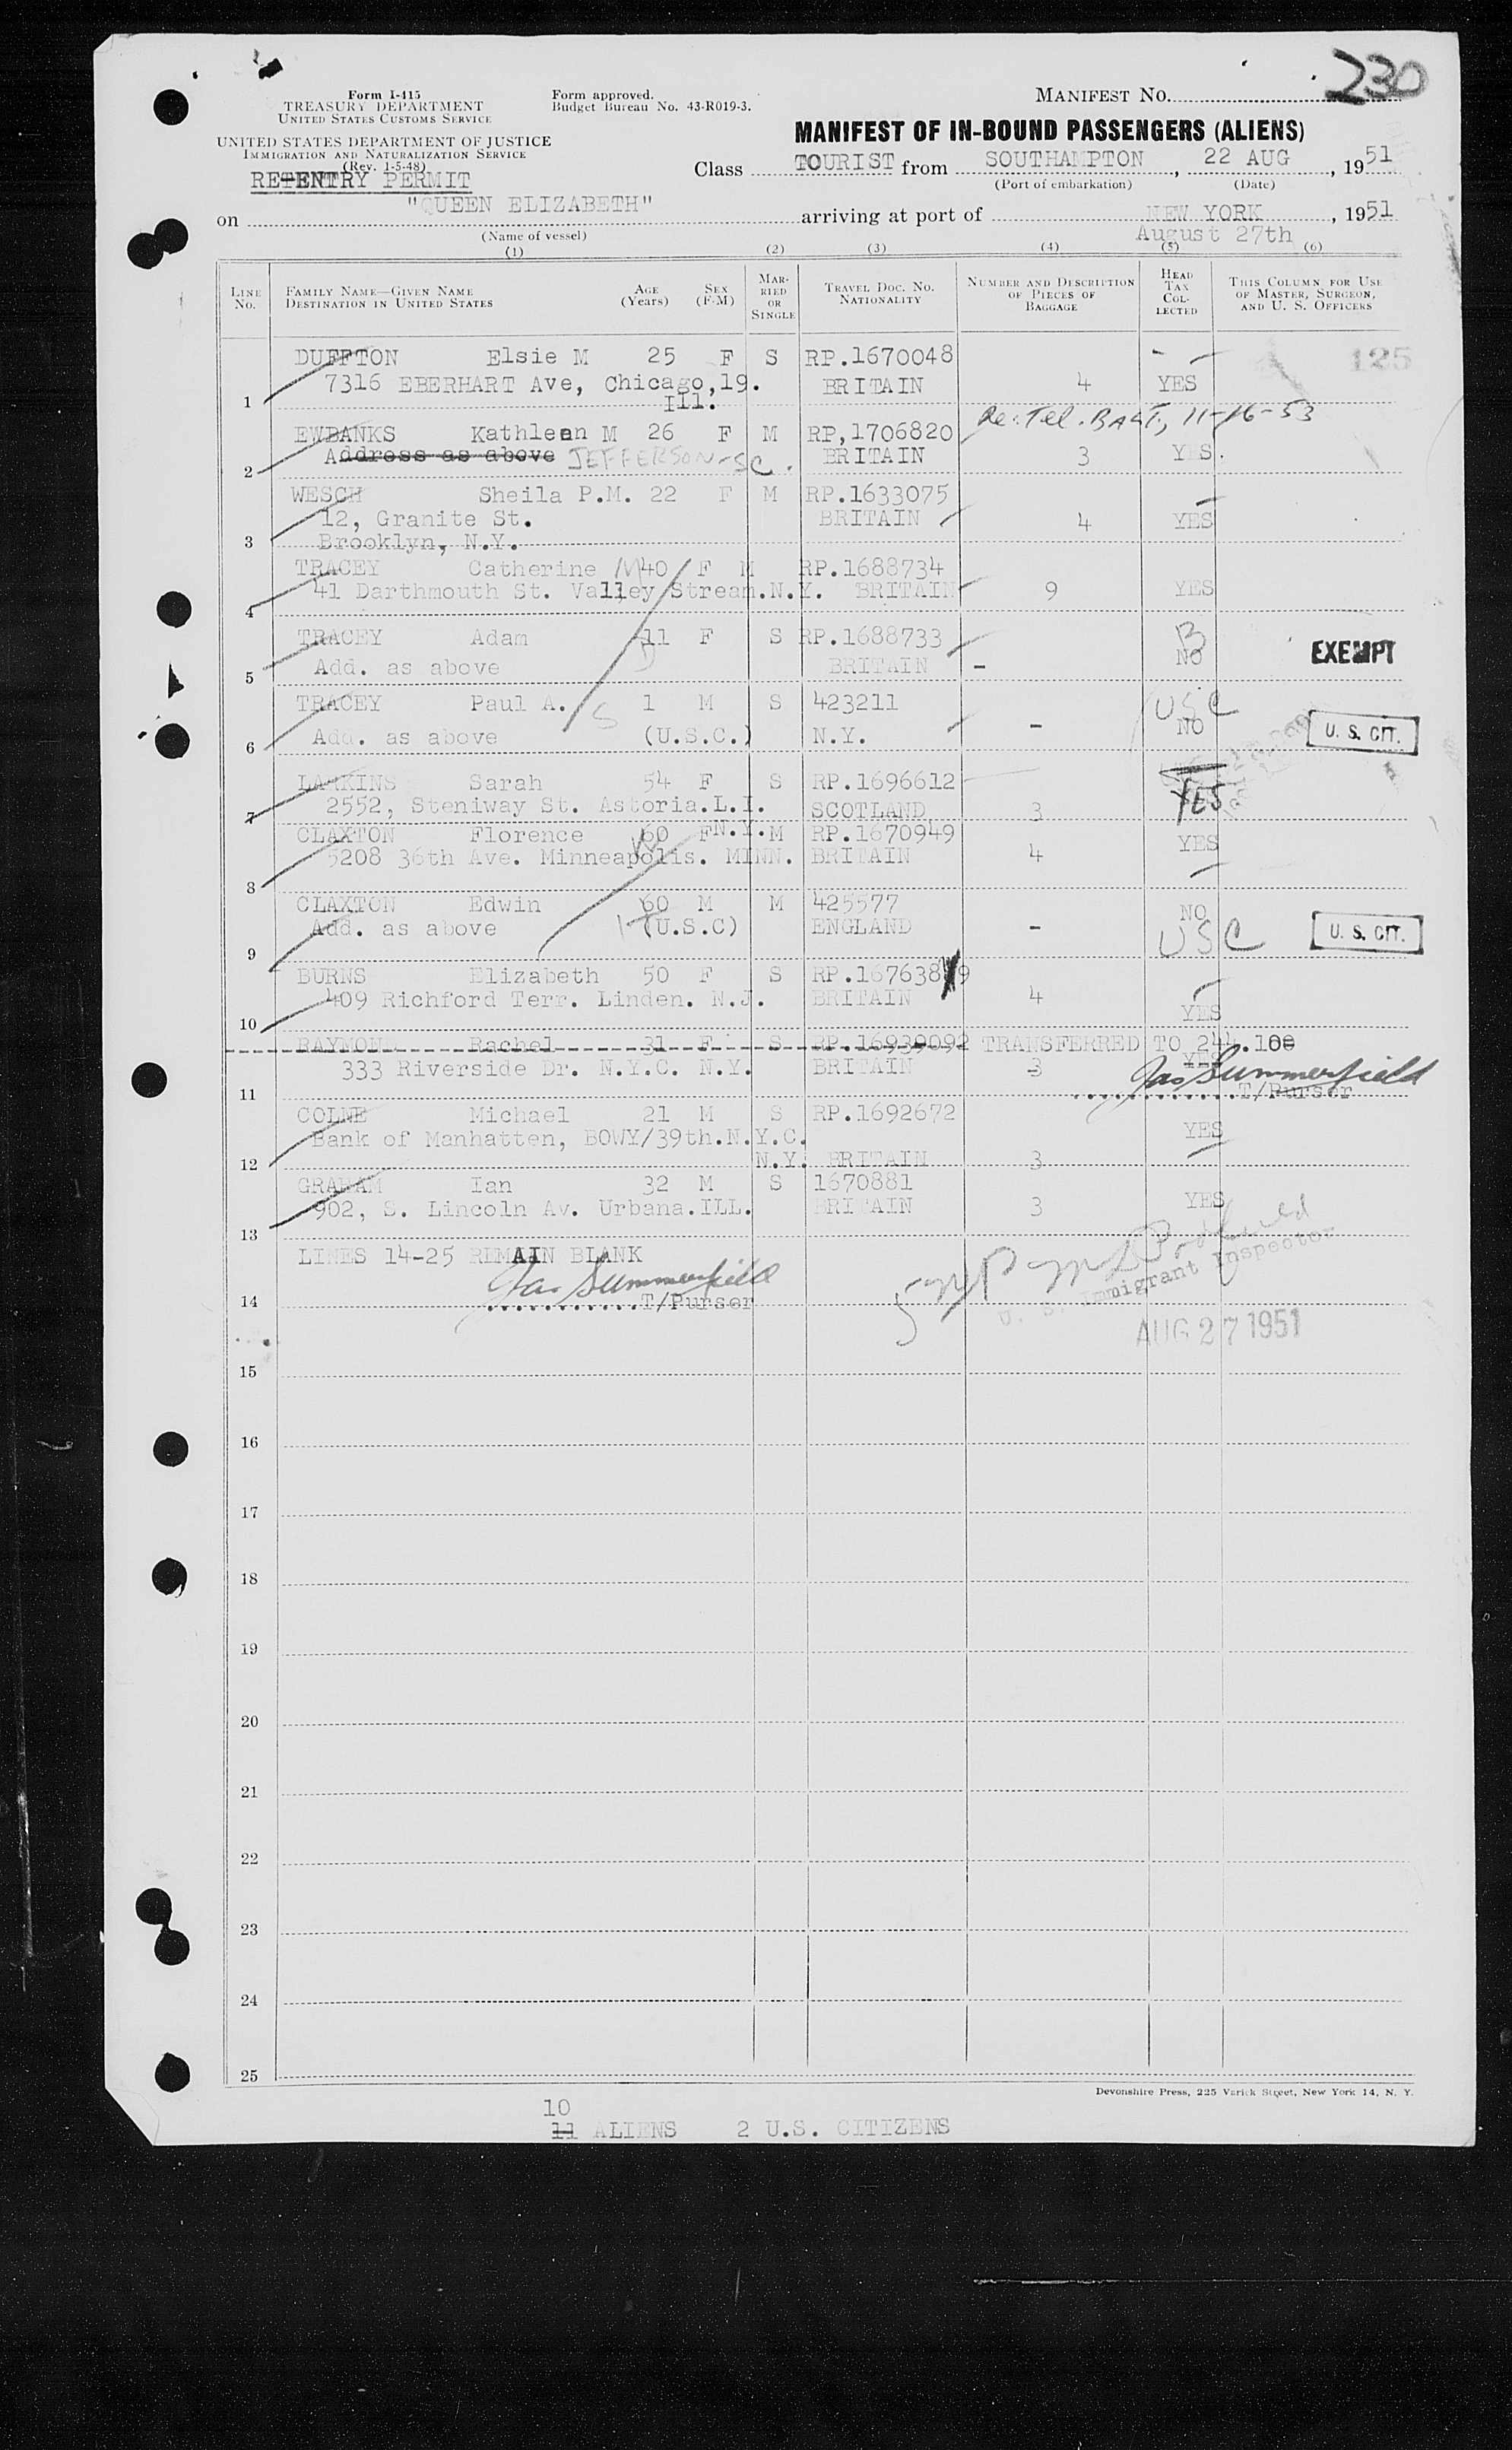 230
Form I-415
TREASURY DEPARTMENT
UNITED STATES CUSTOMS SERVICE
UNITED STATES DEPARTMENT OF JUSTICE
IMMIGRATION AND NATURALIZATION SERVICE
(Rev. 1-5-48)
RE-ENTRY PERMIT
Form approved.
Budget Bureau No. 43-R019-3.
MANIFEST NO.
MANIFEST OF IN-BOUND PASSENGERS (ALIENS)
Class TOURIST from SOUTHAMPTON, 22 AUG, 1951
(Port of embarkation) (Date)
on "QUEEN ELIZABETH" arriving at port of NEW YORK, 1951
(Name of vessel) August 27th
(1) (2) (3) (4) (5) (6)
LINE NO. FAMILY NAME—GIVEN NAME DESTINATION IN UNITED STATES AGE (YEARS) SEX (F-M) MARRIED OR SINGLE TRAVEL DOC. NO. NATIONALITY NUMBER AND DESCRIPTION OF PIECES OF BAGGAGE HEAD TAX COLLECTED THIS COLUMN FOR USE OF MASTER, SURGEON, AND U. S. OFFICERS
DUFFTON Elsie M 25 F S RP.1670048 125
7316 EBERHART Ave, Chicago,19. BRITAIN 4 YES
1 Ill.
Re: Tel. BALT, 11-16-53
EWBANKS Kathleen M 26 F M RP,1706820
2 Address as above JEFFERSON-SC. BRITAIN 3 YES.
WESCH Sheila P.M. 22 F M RP.1633075
12, Granite St. BRITAIN 4 YES
3 Brooklyn, N.Y.
TRACEY Catherine M 40 F M RP.1688734
4 41 Darthmouth St. Valley Stream.N.Y. BRITAIN 9 YES
TRACEY Adam 11 F S RP.1688733 B
5 Add. as above D BRITAIN - NO EXEMPT
TRACEY Paul A. 1 M S 423211 USC
6 Add. as above S (U.S.C.) N.Y. - NO U. S. CIT.
LARKINS Sarah 54 F S RP.1696612
7 2552, Steniway St. Astoria.L.I. SCOTLAND 3 YES
N.Y.
CLAXTON Florence 60 F M RP.1670949 YES
8 5208 36th Ave. Minneapolis. MINN. BRITAIN 4
CLAXTON Edwin 60 M M 425577 NO
9 Add. as above (U.S.C) ENGLAND - USC U. S. CIT.
BURNS Elizabeth 50 F S RP.1676389
10 409 Richford Terr. Linden. N.J. BRITAIN 4 YES
RAYMOND Rachel 31 F S RP.16939092 TRANSFERRED TO 244.
11 333 Riverside Dr. N.Y.C. N.Y. BRITAIN 3 YES Jas Summerfield
T/Purser
COLNE Michael 21 M S RP.1692672
Bank of Manhatten, BOWY/39th.N.Y.C. YES
12 N.Y. BRITAIN 3
GRAHAM Ian 32 M S 1670881 YES
13 902, S. Lincoln Av. Urbana.ILL. BRITAIN 3
LINES 14-25 REMAIN BLANK
Jas Summerfield
14 T/Purser
U. S. Immigrant Inspector
AUG 27 1951
15
16
17
18
19
20
21
22
23
24
25
Devonshire Press, 225 Varick Street, New York 14, N. Y.
10
11 ALIENS 2 U.S. CITIZENS